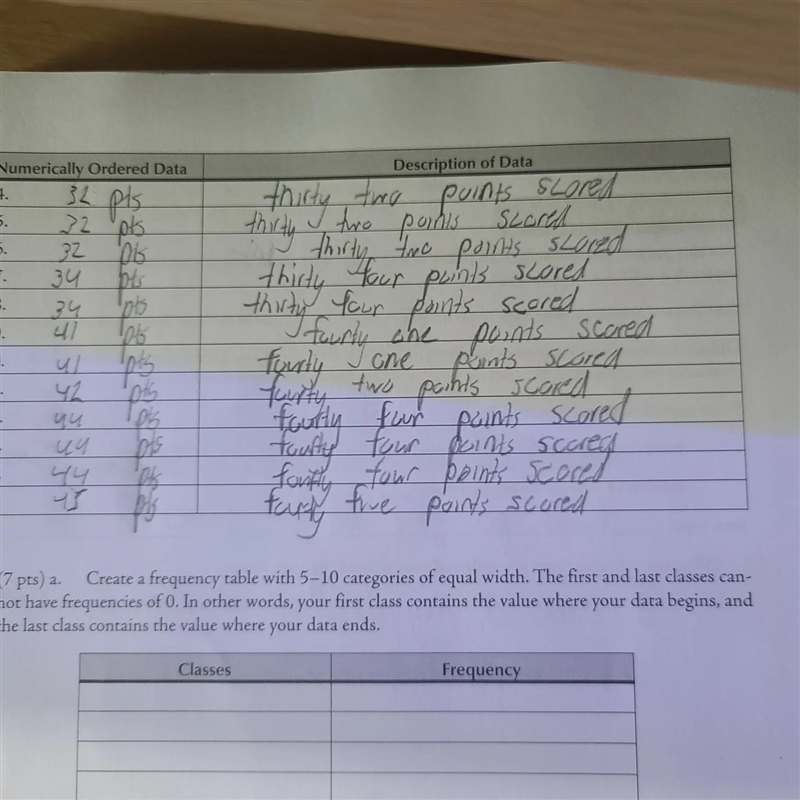 Numerically Ordered Data Description of Data
4. 32 pts thirty two points scored
5. 32 pts thirty two points scored
6. 32 pts thirty two points scored
34 pts thirty four points scored
34 pts thirty four points scored
41 pts fourty one points scored
41 pts fourty one points scored
42 pts fourty two points scored
44 pts fourty four points scored
44 pts fourty four points scored
44 pts fourty four points scored
45 pts fourty five points scored
(7 pts) a. Create a frequency table with 5–10 categories of equal width. The first and last classes can-
not have frequencies of 0. In other words, your first class contains the value where your data begins, and
the last class contains the value where your data ends.
Classes Frequency